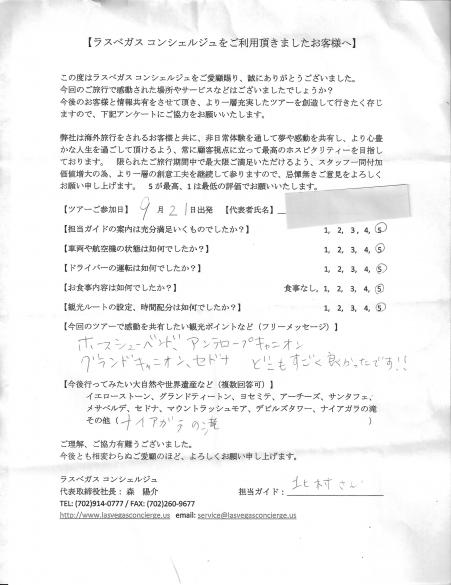 【ラスベガス コンシェルジュをご利用頂きましたお客様へ】
この度はラスベガス コンシェルジュをご愛顧賜り、誠にありがとうございました。
今回のご旅行で感動された場所やサービスなどはございましたでしょうか？
今後のお客様と情報共有をさせて頂き、より一層充実したツアーを創造して行きたく存じ
ますので、下記アンケートにご協力をお願いします。
弊社は海外旅行をされるお客様と共に、非日常体験を通して夢や感動を共有し、より心豊
かな人生を過ごして頂けるよう、常に顧客視点に立って最高のホスピタリティーを目指し
ております。 限られたご旅行期間中で最大限ご満足いただけるよう、スタッフ一同付加
価値増大の為、より一層の創意工夫を継続して参りますので、忌憚無きご意見をよろしく
お願い申し上げます。 5が最高、1は最低の評価でお願いいたします。
【ツアーご参加日】 9月21日出発 【代表者氏名】
【担当ガイドの案内は充分満足いくものでしたか？】 1, 2, 3, 4, 5
【車両や航空機の状態は如何でしたか？】 1, 2, 3, 4, 5
【ドライバーの運転は如何でしたか？】 1, 2, 3, 4, 5
【お食事内容は如何でしたか？】 食事なし, 1, 2, 3, 4, 5
【観光ルートの設定、時間配分は如何でしたか？】 1, 2, 3, 4, 5
【今回のツアーで感動を共有したい観光ポイントなど（フリーメッセージ）】
ホースシューベンド、アンテロープキャニオン
グランドキャニオン、セドナ どこもすごく良かったです!!
【今後行ってみたい大自然や世界遺産など（複数回答可）】
イエローストーン、グランドティートン、ヨセミテ、アーチーズ、サンタフェ、
メサベルデ、セドナ、マウントラッシュモア、デビルズタワー、ナイアガラの滝
その他（ ナイアガラの滝 ）
ご理解、ご協力有難うございました。
今後とも相変わらぬご愛顧のほど、よろしくお願い申し上げます。
ラスベガス コンシェルジュ
代表取締役社長： 森 陽介 担当ガイド： 北村さん
TEL: (702)914-0777 / FAX: (702)260-9677
http://www.lasvegasconcierge.us email: service@lasvegasconcierge.us